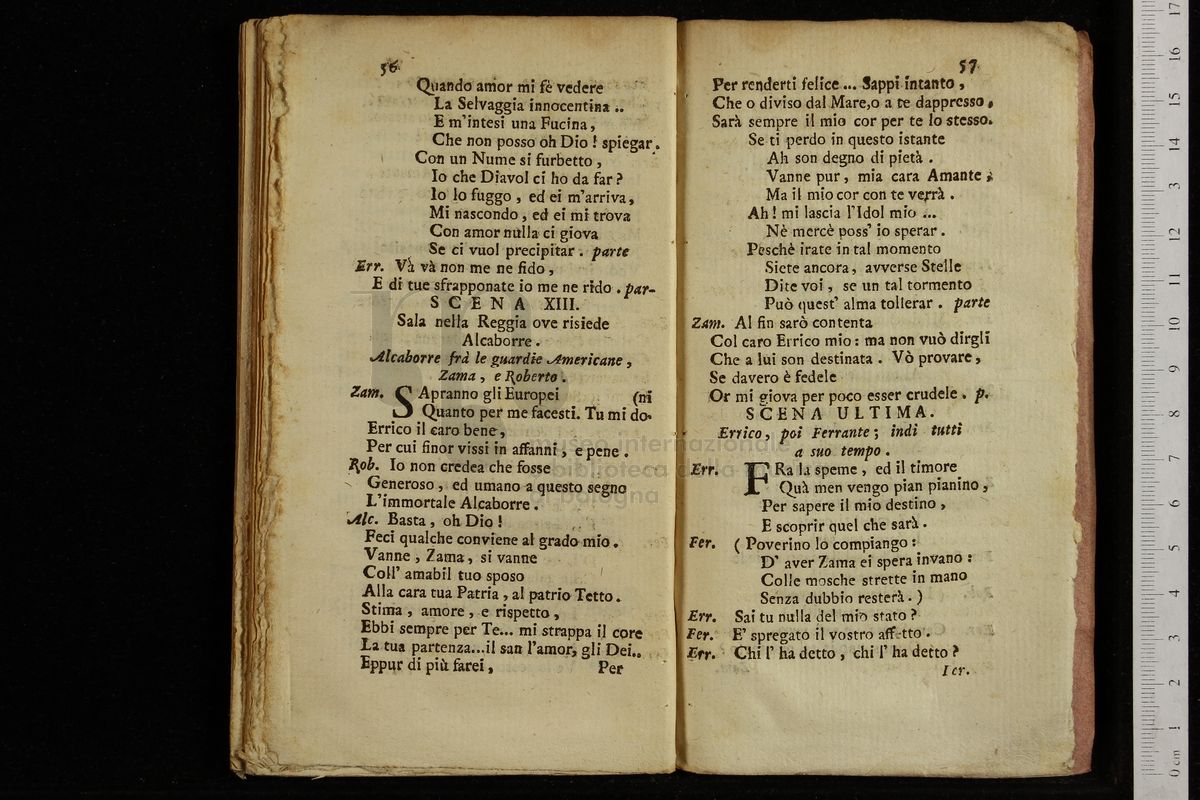 56
Quando amor mi fè vedere
La Selvaggia innocentina ..
E m'intesi una Fucina,
Che non posso oh Dio ! spiegar.
Con un Nume si furbetto,
Io che Diavol ci ho da far ?
Io lo fuggo, ed ei m'arriva,
Mi nascondo, ed ei mi trova
Con amor nulla ci giova
Se ci vuol precipitar. parte
Err. Và và non me ne fido,
E di tue sfrapponate io me ne rido. par-
SCENA XIII.
Sala nella Reggia ove risiede
Alcaborre.
Alcaborre frà le guardie Americane,
Zama, e Roberto.
Zam. SApranno gli Europei (ni
Quanto per me facesti. Tu mi do-
Errico il caro bene,
Per cui finor vissi in affanni, e pene.
Rob. Io non credea che fosse
Generoso, ed umano a questo segno
L'immortale Alcaborre.
Alc. Basta, oh Dio !
Feci qualche conviene al grado mio.
Vanne, Zama, si vanne
Coll' amabil tuo sposo
Alla cara tua Patria, al patrio Tetto.
Stima, amore, e rispetto,
Ebbi sempre per Te... mi strappa il core
La tua partenza...il san l'amor, gli Dei..
Eppur di più farei, Per
57
Per renderti felice ... Sappi intanto,
Che o diviso dal Mare,o a te dappresso,
Sarà sempre il mio cor per te lo stesso.
Se ti perdo in questo istante
Ah son degno di pietà.
Vanne pur, mia cara Amante;
Ma il mio cor con te verrà.
Ah ! mi lascia l'Idol mio ...
Nè mercè poss' io sperar.
Peschè irate in tal momento
Siete ancora, avverse Stelle
Dite voi, se un tal tormento
Può quest' alma tollerar. parte
Zam. Al fin sarò contenta
Col caro Errico mio : ma non vuò dirgli
Che a lui son destinata. Vò provare,
Se davero è fedele
Or mi giova per poco esser crudele. p.
SCENA ULTIMA.
Errico, poi Ferrante ; indi tutti
a suo tempo.
Err. FRa la speme, ed il timore
Quà men vengo pian pianino,
Per sapere il mio destino,
E scoprir quel che sarà.
Fer. ( Poverino lo compiango :
D' aver Zama ei spera invano :
Colle mosche strette in mano
Senza dubbio resterà. )
Err. Sai tu nulla del mio stato ?
Fer. E' spregato il vostro affetto.
Err. Chi l' ha detto, chi l' ha detto ?
Icr.
museo internazionale
biblioteca della
di bologna
0 cm 1 2 3 4 5 6 7 8 9 10 11 12 13 14 15 16 17